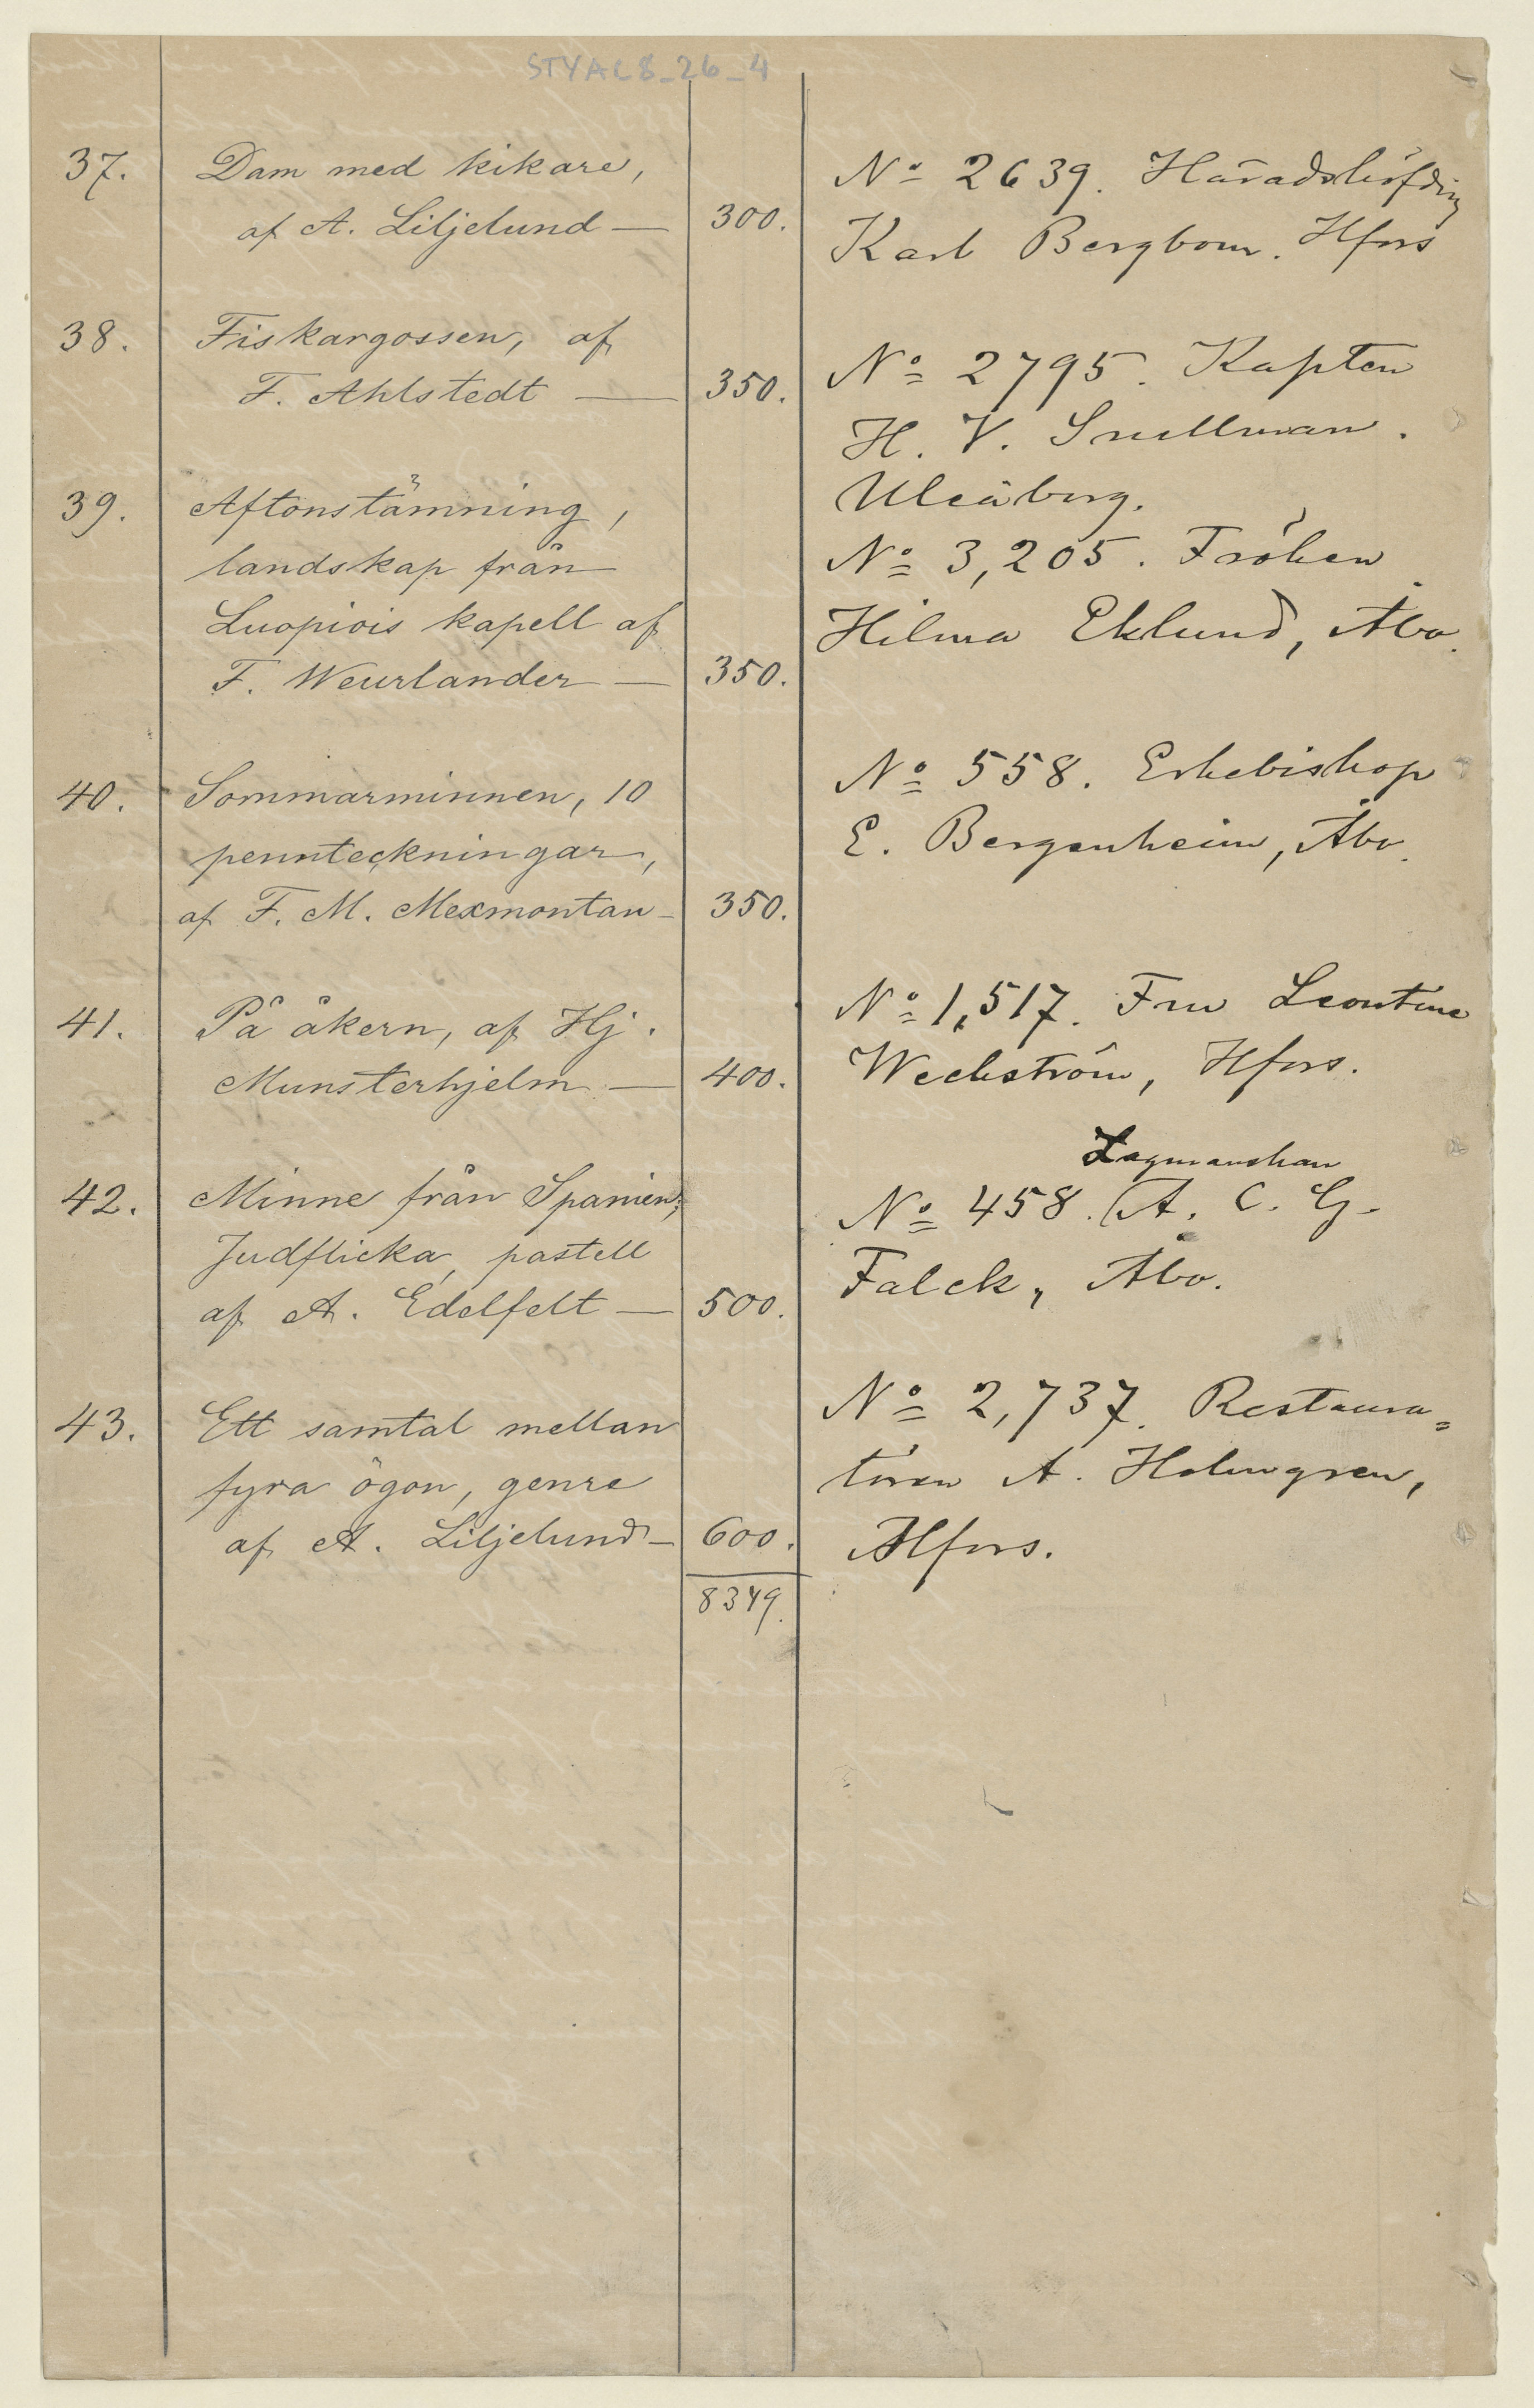 STYAL8_26_4
37. Dam med kikare,
af A. Liljelund — 300.
No 2639. Häradshöfding
Karl Bergbom. Hfors
38. Fiskargossen, af
F. Ahlstedt — 350.
No 2795. Kapten
H. V. Snellman.
Uleåborg.
39. Aftonstämning,
landskap från
Luopiois kapell af
F. Weurlander — 350.
No 3,205. Fröken
Hilma Eklund, Åbo.
40. Sommarminnen, 10
pennteckningar,
af F. M. Mexmontan — 350.
No 558. Erkebiskop
E. Bergenheim, Åbo.
41. På åkern, af Hj.
Munsterhjelm — 400.
No 1,517. Fru Leontine
Weckström, Hfors.
42. Minne från Spanien;
Judflicka, pastell
af A. Edelfelt — 500.
Lagmanskan
No 458. A. C. G.
Falck, Åbo.
43. Ett samtal mellan
fyra ögon, genre
af A. Liljelund — 600.
8349.
No 2,737. Restaura=
tören A. Holmgren,
Hfors.